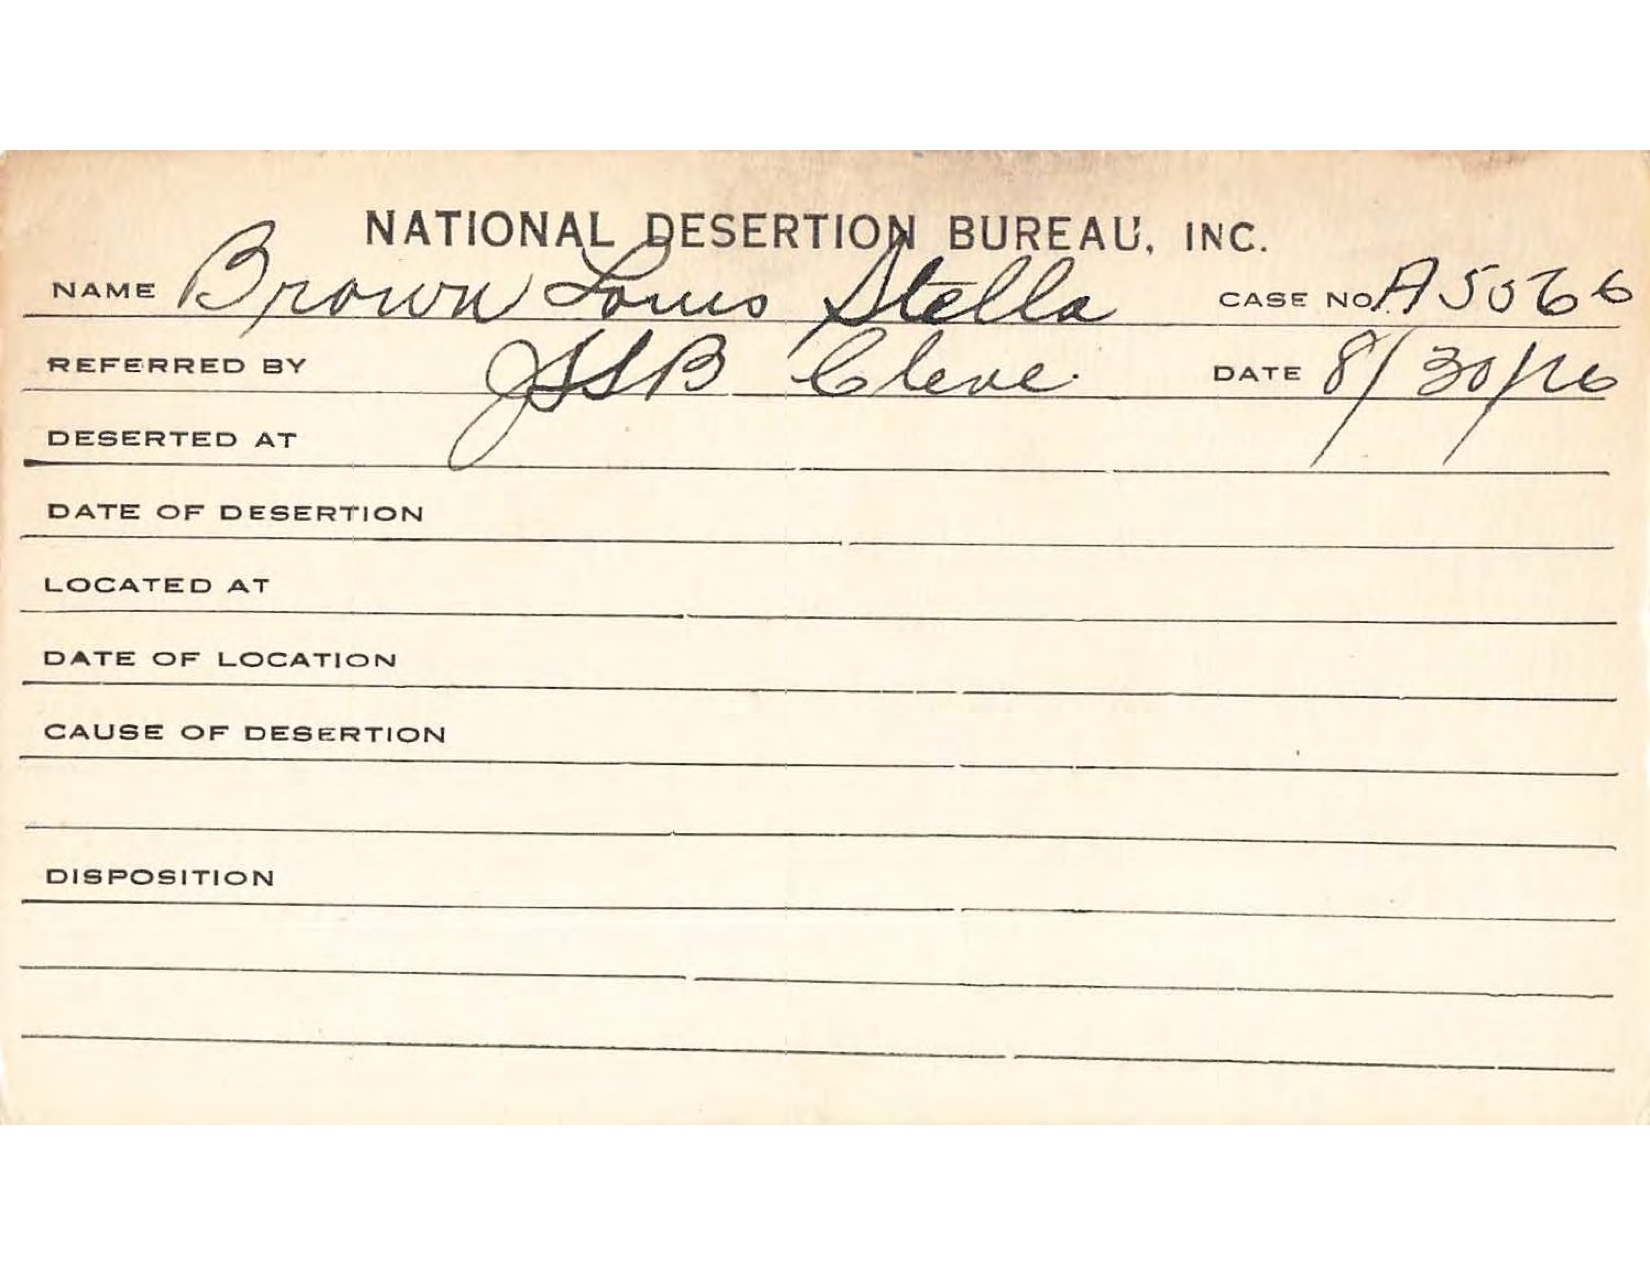 NATIONAL DESERTION BUREAU, INC.
NAME Brown Louis Stella CASE NO. A5066
REFERRED BY JSSB Cleve. DATE 8/30/26
DESERTED AT
DATE OF DESERTION
LOCATED AT
DATE OF LOCATION
CAUSE OF DESERTION
DISPOSITION